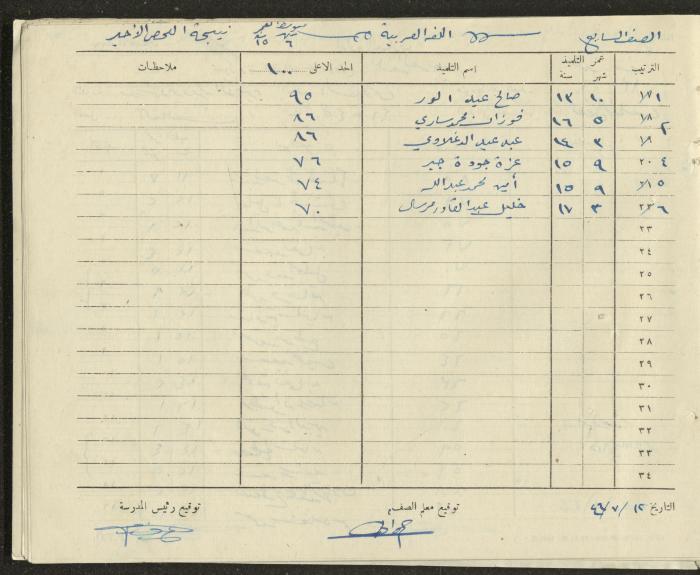 الصف السابع اللغة العربية متوسط العمر شهر ٦ سنة ١٥ نتيجة الفحص الأخير
الترتيب عمر التلميذ شهر سنة اسم التلميذ الحد الاعلى ١٠٠ ملاحظات
١ ١٠ ١٣ صالح عيد ٩٥
٢ ٥ ١٦ فوزان محمد ساري ٨٦
٣ ١٤ عبد عيد الدغلاوي ٨٦
٤ ٩ ١٥ عزة جودة جبر ٧٦
٥ ٩ ١٥ أمين محمد عبدالله ٧٤
٦ ٣ ١٧ خليل عبد القادر مرسال ٧٠
٢٣
٢٤
٢٥
٢٦
٢٧
٢٨
٢٩
٣٠
٣١
٣٢
٣٣
٣٤
التاريخ ١٢/٧/٤٦ توقيع معلم الصف توقيع رئيس المدرسة